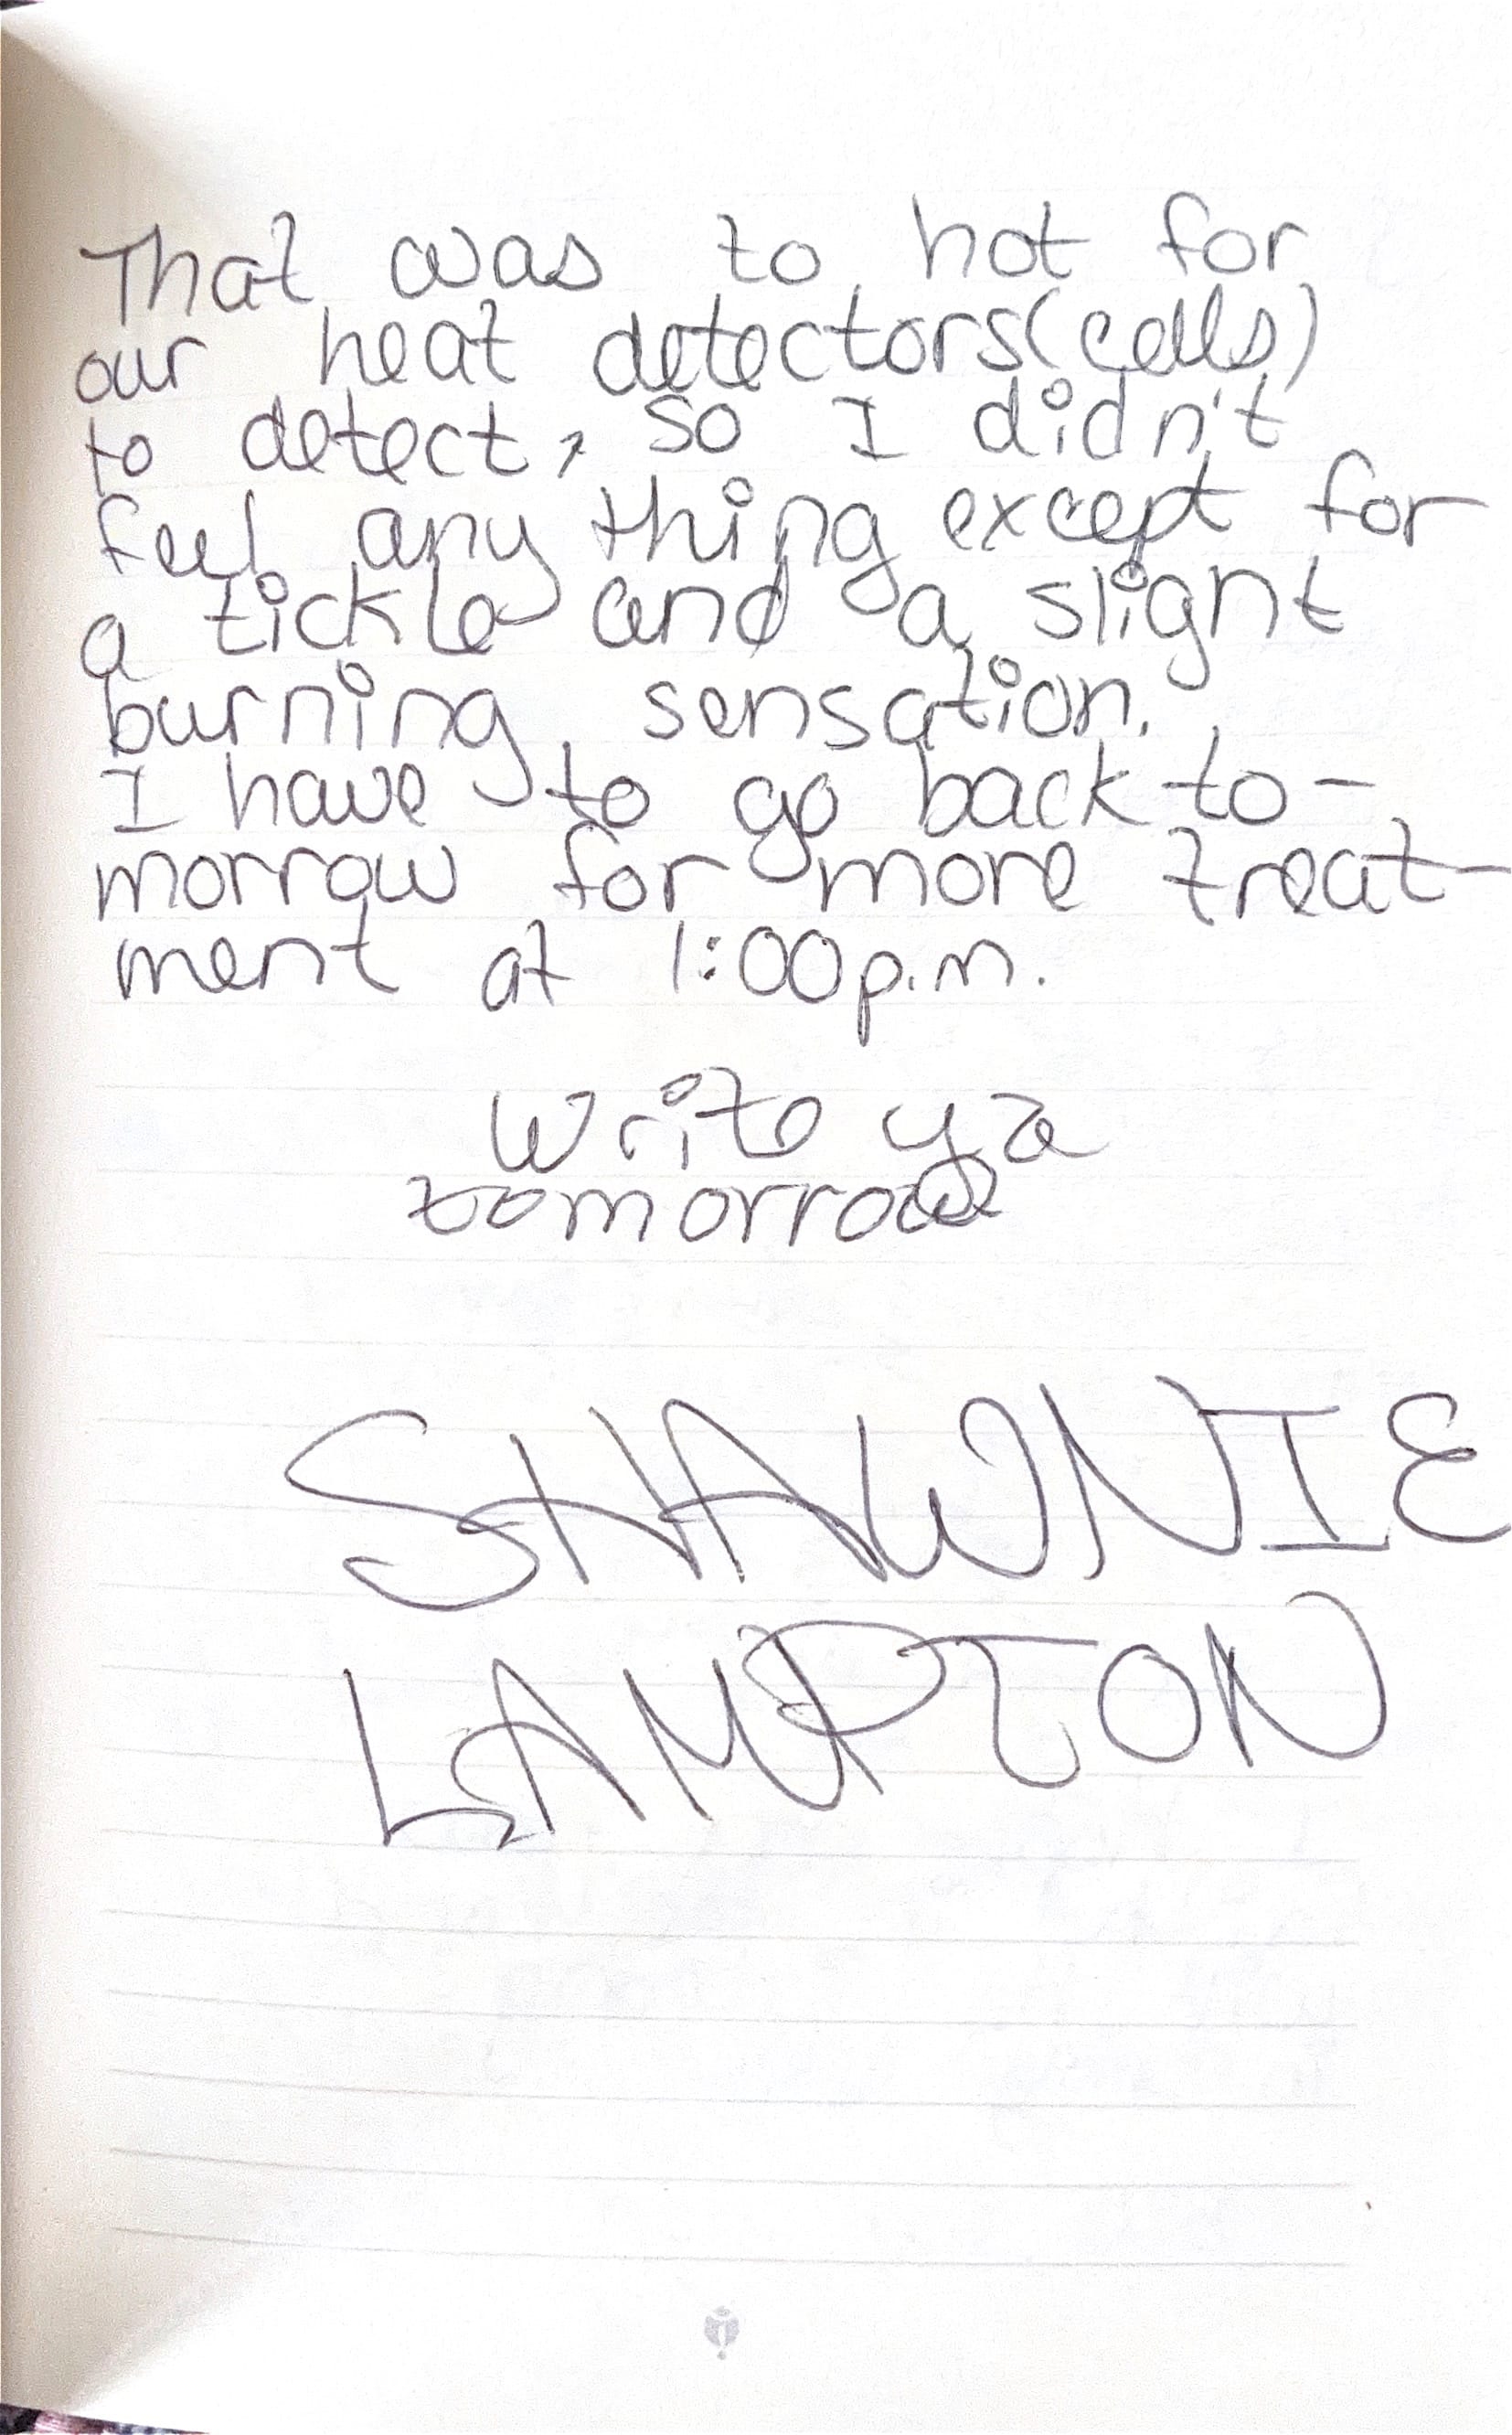 That was to hot for
our heat detectors(cells)
to detect, so I didn't
feel any thing except for
a tickle and a slight
burning sensation.
I have to go back to-
morrow for more treat-
ment at 1:00p.m.
Write ya
tomorrow
SHAWNIE
LAMPTON